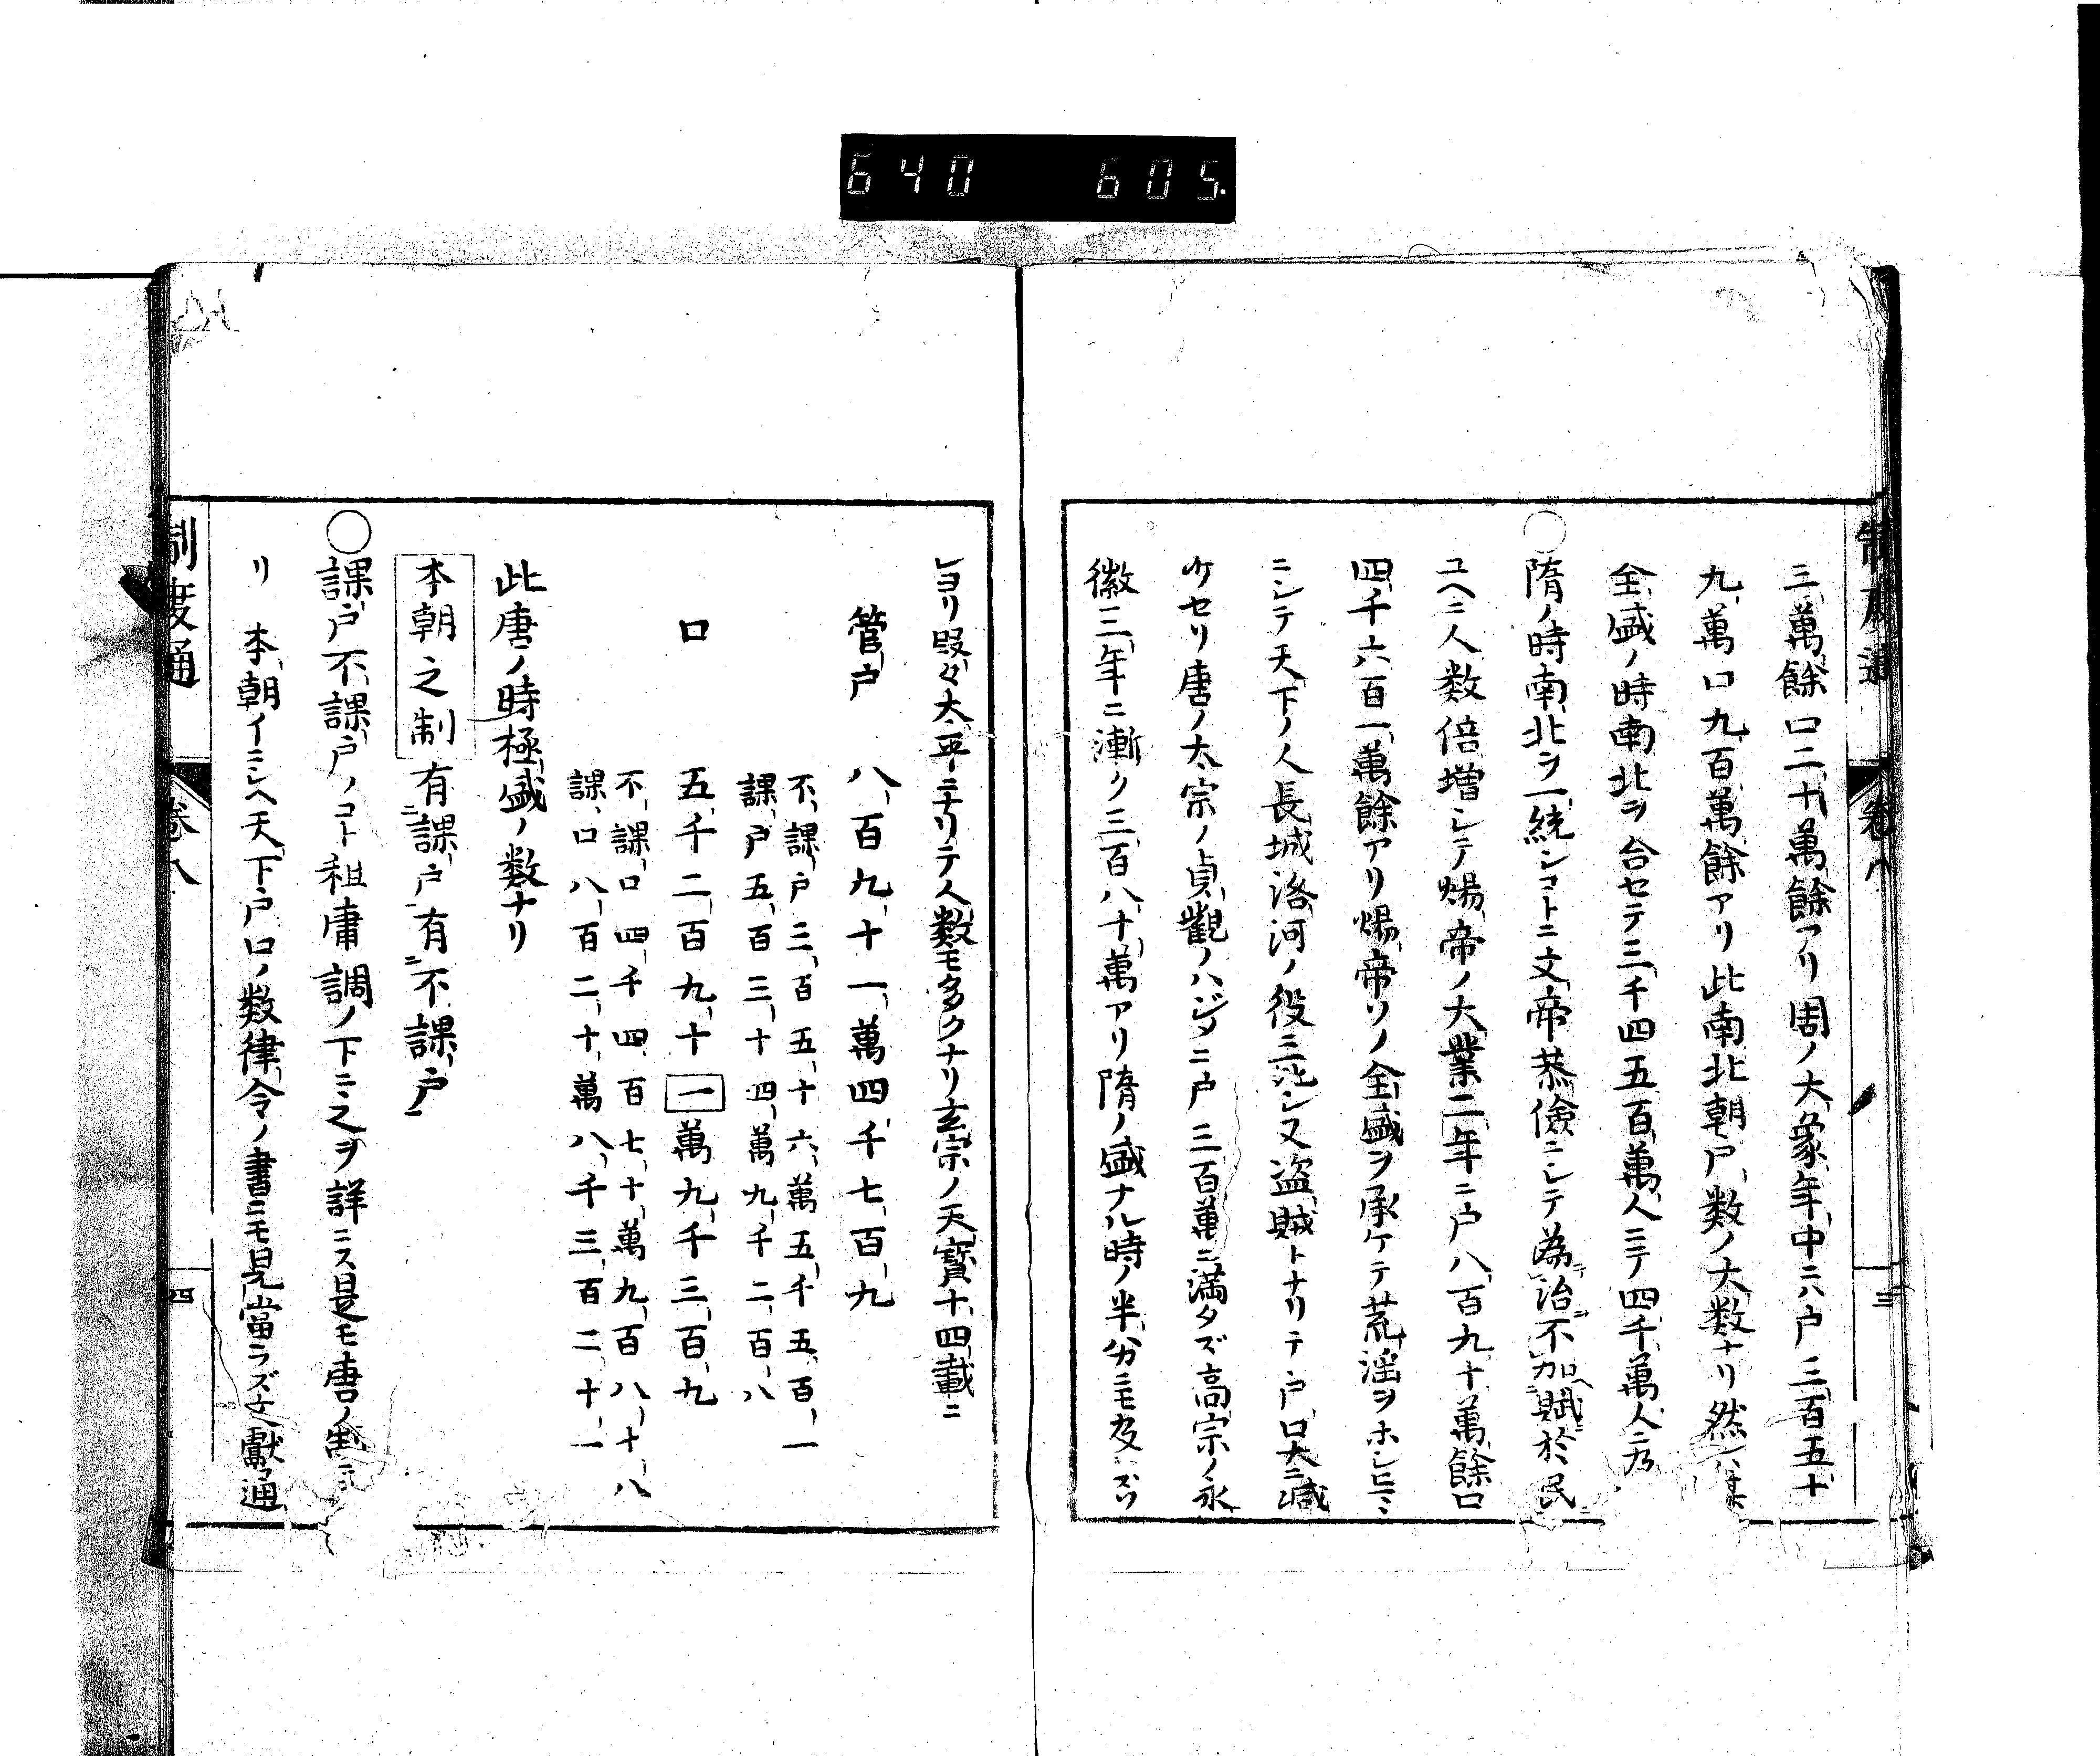 640 605.
制度通 卷八 三
三萬餘口二十萬餘アリ周ノ大象年中ニハ戸三百五十
九萬口九百萬餘アリ此南北朝戸数ノ大数ナリ然レハ
全盛ノ時南北ヲ合セテ三千四五百萬人ニテ四千萬人ニ乃
〇隋ノ時南北ヲ一統シコトニ文帝恭儉ニシテ為治不加賦於民
ユヘニ人数倍増シテ煬帝ノ大業二年ニ戸八百九十萬餘口
四千六百一萬餘アリ煬帝ソノ全盛ヲ承ケテ荒淫ヲホシヒミヽ
ニシテ天下ノ人長城洛河ノ役ニ死シ又盗賊トナリテ戸口大ニ減
少セリ唐ノ太宗ノ貞觀ノハジメニ戸三百萬ニ満タズ高宗ノ永
徽三年ニ漸ク三百八十萬アリ隋ノ盛ナル時ノ半分ニモ及ズソ
レヨリ段々太平ニナリテ人数モ多クナリ玄宗ノ天寶十四載ニ
管戸 八百九十一萬四千七百九
不課戸三百五十六萬五千五百一
課戸五百三十四萬九千二百八
口 五千二百九十一萬九千三百九
不課口四千四百七十萬九百八十八
課口八百二十萬八千三百二十一
此唐ノ時極盛ノ数ナリ
本朝之制 有課戸有不課戸
〇課戸不課戸ノコト租庸調ノ下ニ之ヲ詳ニス是モ唐ノ制ニ
リ 本朝イニシヘ天下戸口ノ数律令ノ書ニモ見當ラズ文獻通
制度通 卷八 四